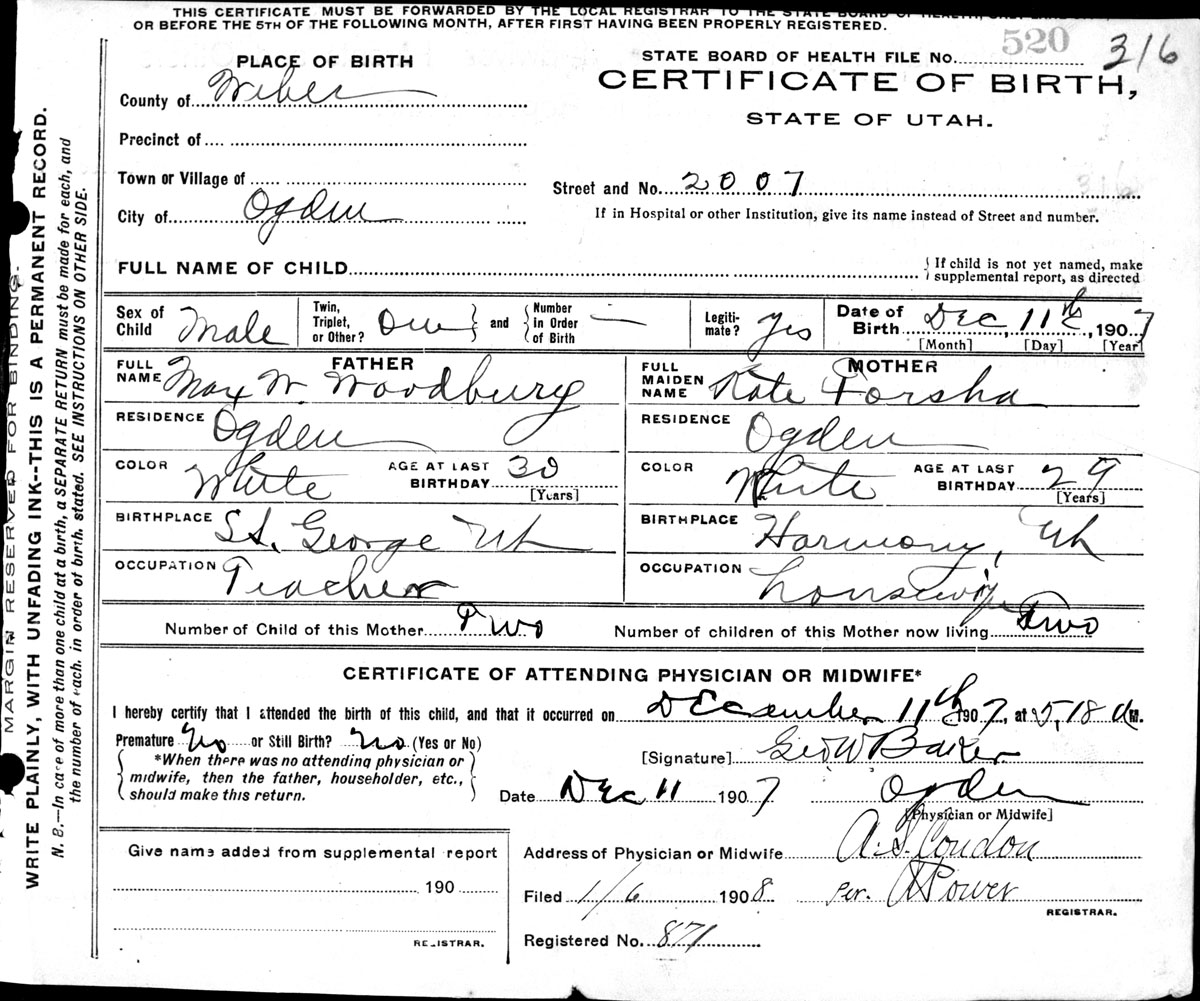 THIS CERTIFICATE MUST BE FORWARDED BY THE LOCAL REGISTRAR TO THE STATE BOARD OF HEALTH,
OR BEFORE THE 5TH OF THE FOLLOWING MONTH, AFTER FIRST HAVING BEEN PROPERLY REGISTERED.
520
316
PLACE OF BIRTH
STATE BOARD OF HEALTH FILE No.
CERTIFICATE OF BIRTH,
STATE OF UTAH.
County of Weber
Precinct of
Town or Village of
Street and No. 2007
316
City of Ogden
If in Hospital or other Institution, give its name instead of Street and number.
FULL NAME OF CHILD
{ If child is not yet named, make
supplemental report, as directed
Sex of Child Male
Twin, Triplet, or Other? One } and { Number in Order of Birth —
Legiti-mate? Yes
Date of Birth Dec 11th, 1907
[Month] [Day] [Year]
FATHER
FULL NAME Max W. Woodbury
RESIDENCE Ogden
COLOR White AGE AT LAST BIRTHDAY 30
[Years]
BIRTHPLACE St. George Uh
OCCUPATION Teacher
MOTHER
FULL MAIDEN NAME Kate Forsha
RESIDENCE Ogden
COLOR White AGE AT LAST BIRTHDAY 29
[Years]
BIRTHPLACE Harmony, Uh
OCCUPATION housewife
Number of Child of this Mother Two Number of children of this Mother now living Two
CERTIFICATE OF ATTENDING PHYSICIAN OR MIDWIFE*
I hereby certify that I attended the birth of this child, and that it occurred on December 11th 1907, at 5,18 a M.
Premature No or Still Birth? No (Yes or No)
{ *When there was no attending physician or
midwife, then the father, householder, etc.,
should make this return. }
[Signature] Geo W Baker
Date Dec 11 1907
Ogden
[Physician or Midwife]
Give name added from supplemental report
190
REGISTRAR.
Address of Physician or Midwife A. S. Condon
Filed 1/6 1908 per. A Power
REGISTRAR.
Registered No. 871
MARGIN RESERVED FOR BINDING.
WRITE PLAINLY, WITH UNFADING INK--THIS IS A PERMANENT RECORD.
N. B.—In case of more than one child at a birth, a SEPARATE RETURN must be made for each, and
the number of each, in order of birth, stated. SEE INSTRUCTIONS ON OTHER SIDE.